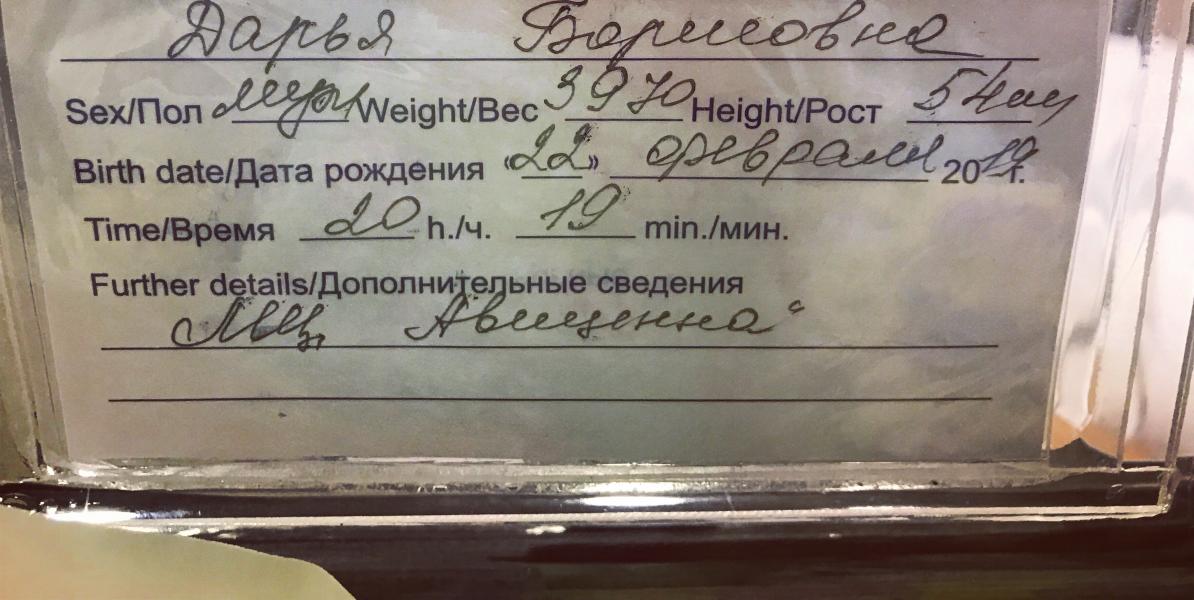 Дарья Борисовна
Sex/Пол муж Weight/Вес 3970 Height/Рост 54см
Birth date/Дата рождения «22» февраля 2019г.
Time/Время 20 h./ч. 19 min./мин.
Further details/Дополнительные сведения
МЦ Авиценна"